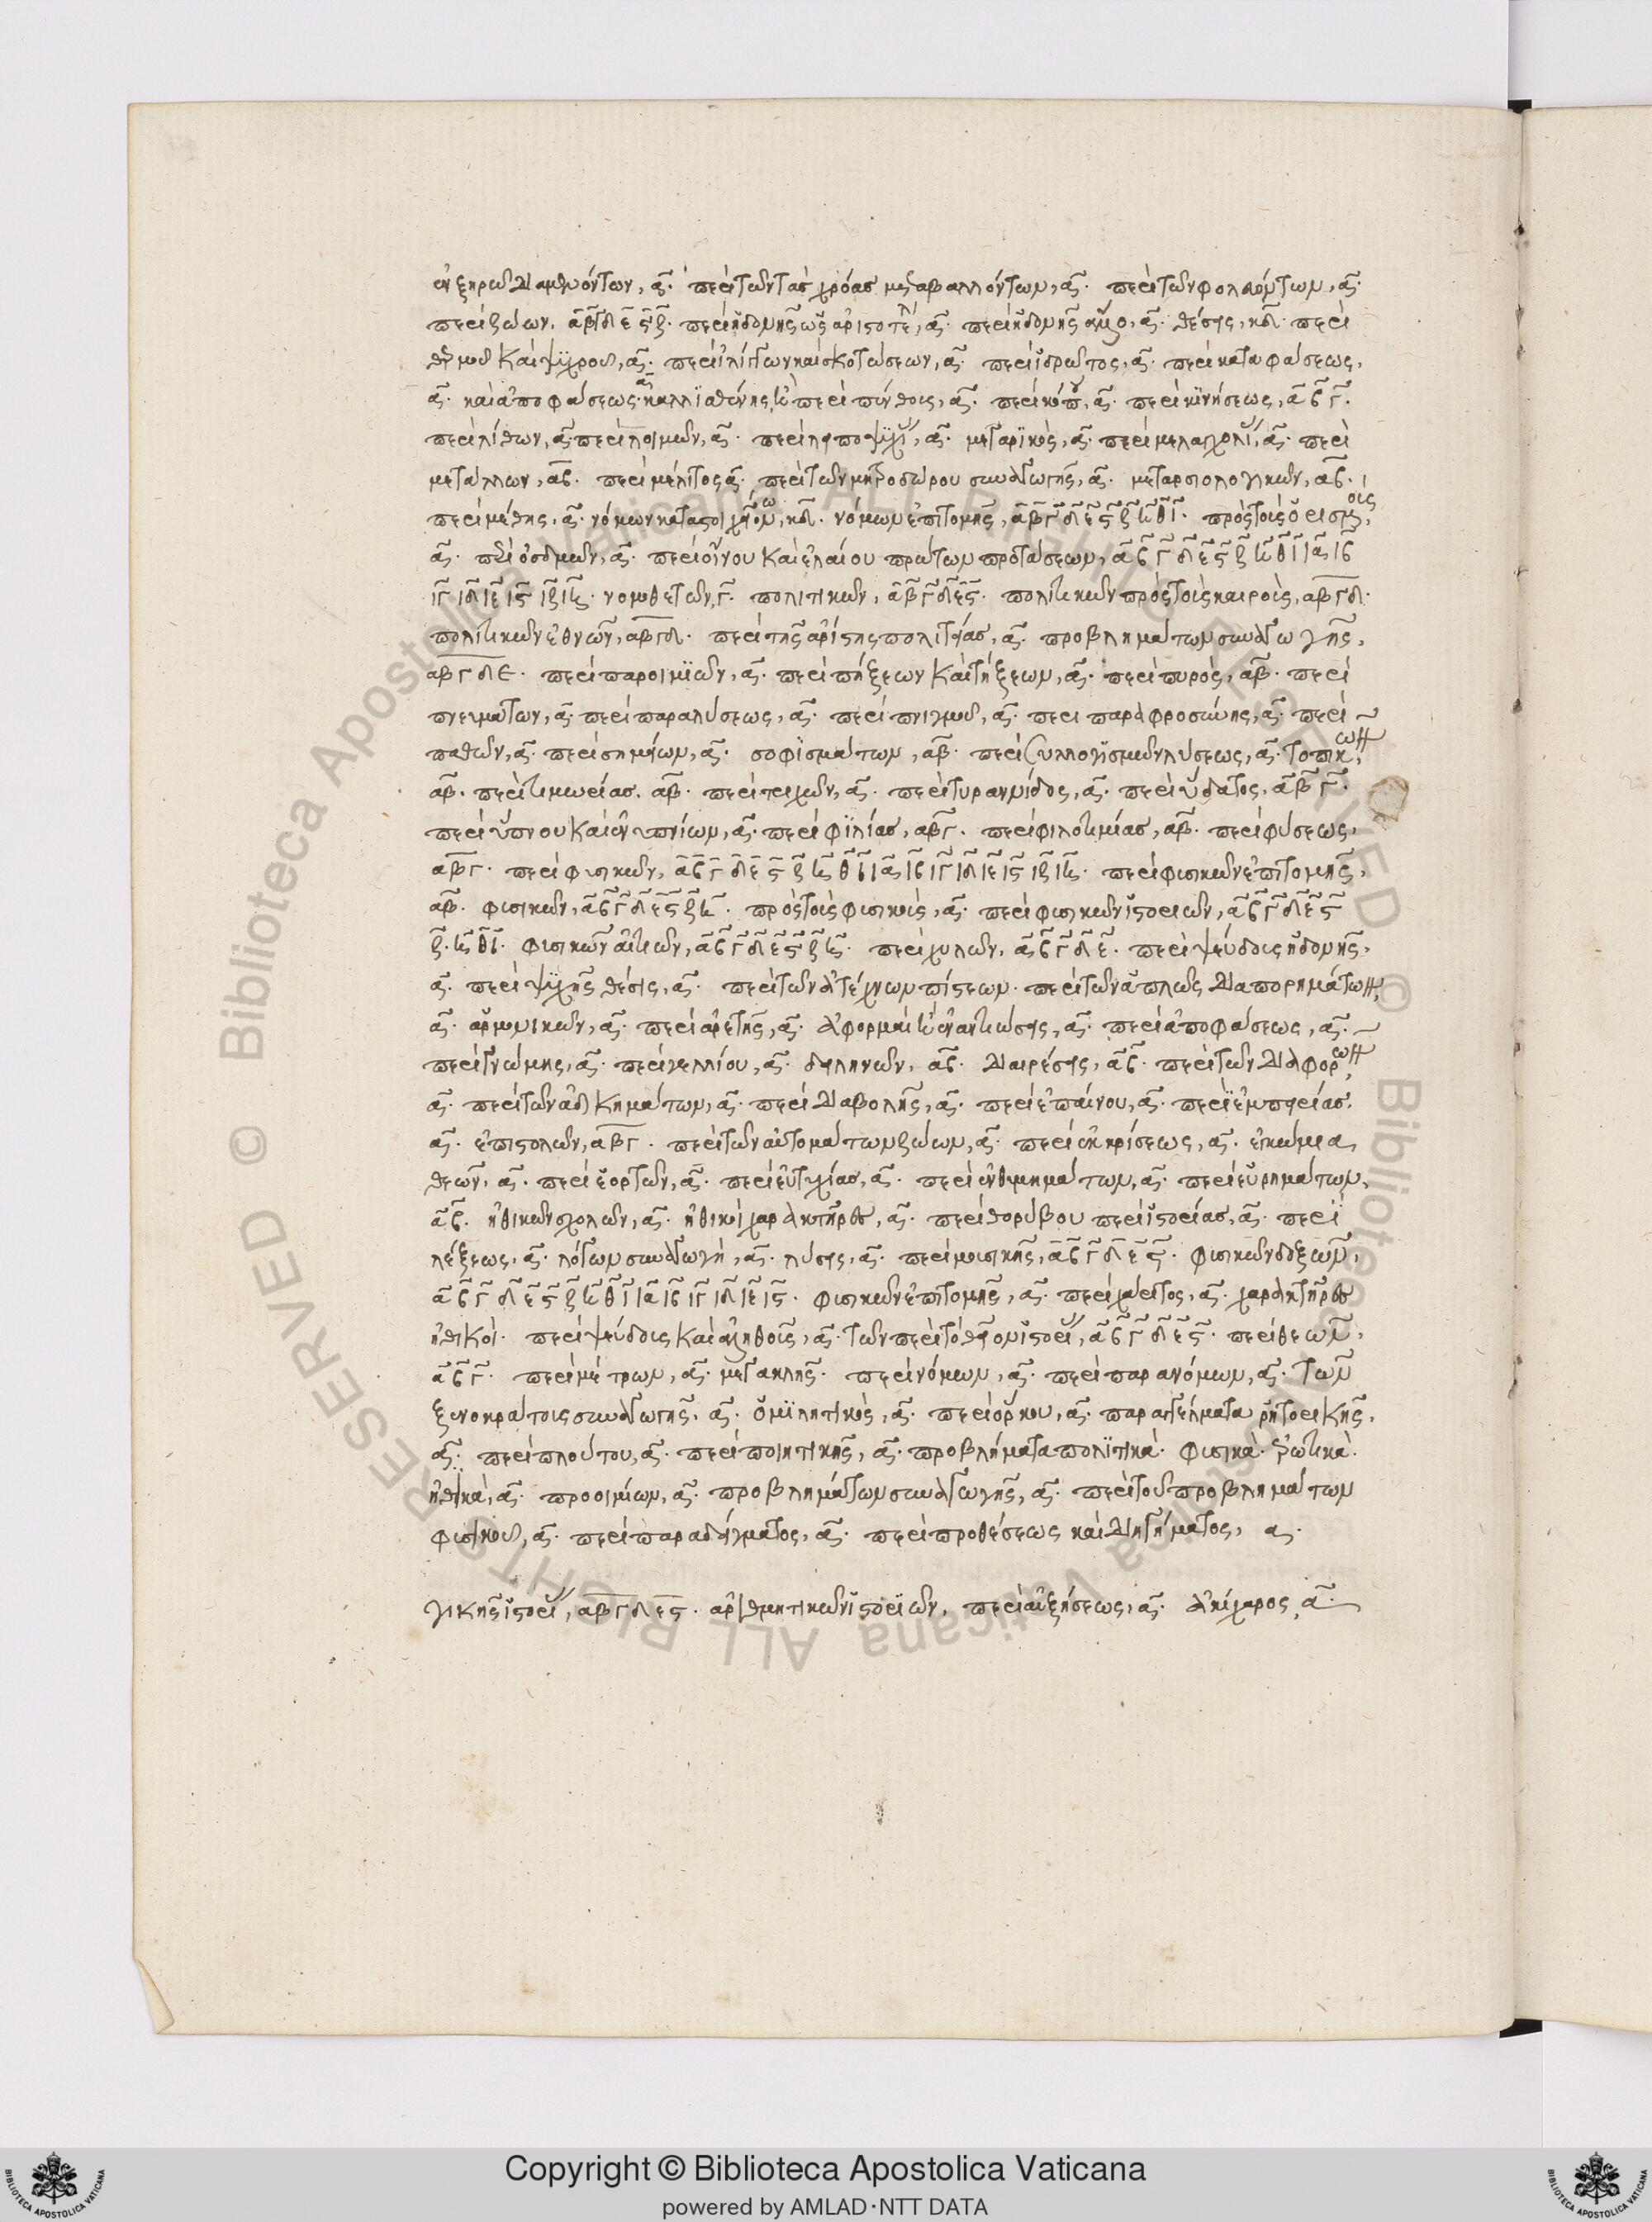 ἐν ξηρῶ διαμενόντων, α. περὶ τῶν τὰς χρόας μεταβαλλόντων, α. περὶ τῶν φωλευόντων, α.
περὶ ζώων, αβγδεςζ. περὶ ἡδονῆς ὡς ἀριστοτέλ, α. περὶ ἡδονῆς ἄλλο, α. θέσεις, κδ. περὶ
θερμοῦ καὶ ψυχροῦ, α. περὶ ἰλίγγων καὶ σκοτώσεων, α. περὶ ἱδρῶτος, α. περὶ καταφάσεως,
α. καὶ ἀποφάσεως. α. καλλισθένης ἢ περὶ πένθους, α. περὶ κόπου, α. περὶ κινήσεως, αβγ.
περὶ λίθων, α. περὶ λοιμῶν, α. περὶ λειποψυχί, α. μεγαρικὸς, α. περὶ μελαγχολί, α. περὶ
μετάλλων, αβ. περὶ μέλιτος α. περὶ τῶν μητροδώρου συναγωγῆς, α. μεταρσιολογικῶν, αβ.
περὶ μέθης, α. νόμων κατὰ στοιχεῖον, κδ. νόμων ἐπιτομῆς, αβγδεςζηθι. πρὸς τοὺς ὁρισμοὺς,
α. περὶ ὀσμῶν, α. περὶ οἴνου καὶ ἐλαίου πρώτων προτάσεων, αβγδεςζηθι ια ιβ
ιγ ιδ ιε ις ιζ ιη. νομοθετῶν, γ. πολιτικῶν, αβγδες. πολιτικῶν πρὸς τοὺς καιροὺς, αβγδ.
πολιτικῶν ἐθνῶν, αβγδ. περὶ τῆς ἀρίστης πολιτείας, α. προβλημάτων συναγωγῆς,
αβγδε. περὶ παροιμιῶν, α. περὶ πήξεων καὶ τήξεων, α. περὶ πυρὸς, αβ. περὶ
πνευμάτων, α. περὶ παραλύσεως, α. περὶ πνιγμοῦ, α. περὶ παραφροσύνης, α. περὶ
παθῶν, α. περὶ σημείων, α. σοφισμάτων, αβ. περὶ συλλογισμῶν λύσεως, α. τοπικῶν,
αβ. περὶ τιμωρίας. αβ. περὶ τριχῶν, α. περὶ τυραννίδος, α. περὶ ὕδατος, αβγ.
περὶ ὕπνου καὶ ἐνυπνίων, α. περὶ φιλίας, αβγ. περὶ φιλοτιμίας, αβ. περὶ φύσεως,
αβγ. περὶ φυσικῶν, αβγδεςζηθι ια ιβ ιγ ιδ ιε ις ιζ ιη. περὶ φυσικῶν ἐπιτομῆς,
αβ. φυσικῶν, αβγδεςζη. πρὸς τοὺς φυσικοὺς, α. περὶ φυσικῶν ἱστοριῶν, αβγδες
ζ. ηθι. φυσικῶν αἰτιῶν, αβγδεςζη. περὶ χυλῶν, αβγδε. περὶ ψεύδους ἡδονῆς,
α. περὶ ψυχῆς θέσις, α. περὶ τῶν ἀτέχνων πίστεων. περὶ τῶν ἁπλῶς διαπορημάτων,
α. ἁρμονικῶν, α. περὶ ἀρετῆς, α. ἀφορμαὶ ἢ ἐναντιώσεις, α. περὶ ἀποφάσεως, α.
περὶ γνώμης, α. περὶ γελλίου, α. δειληνῶν, αβ. διαιρέσεις, αβ. περὶ τῶν διαφορῶν,
α. περὶ τῶν ἀδικημάτων, α. περὶ διαβολῆς, α. περὶ ἐπαίνου, α. περὶ ἐμπειρίας.
α. ἐπιστολῶν, αβγ. περὶ τῶν αὐτομάτων ζώων, α. περὶ ἐκκρίσεως, α. ἐγκώμια
θεῶν, α. περὶ ἑορτῶν, α. περὶ εὐτυχίας, α. περὶ ἐνθυμημάτων, α. περὶ εὑρημάτων,
αβ. ἠθικῶν σχολῶν, α. ἠθικοὶ χαρακτῆρες, α. περὶ θορύβου περὶ ἱστορίας, α. περὶ
λέξεως, α. λόγων συναγωγὴ, α. λύσεις, α. περὶ μουσικῆς, αβγδες. φυσικῶν δοξῶν,
αβγδεςζηθι ια ιβ ιγ ιδ ιε ις. φυσικῶν ἐπιτομῆς, α. περὶ χάριτος, α. χαρακτῆρες
ἠθικοὶ. περὶ ψεύδους καὶ ἀληθοῦς, α. τῶν περὶ τὸ θεῖον ἱστορί, αβγδες. περὶ θεῶν,
αβγ. περὶ μέτρων, α. μεγακλῆς. περὶ νόμων, α. περὶ παρανόμων, α. τῶν
ξενοκράτους συναγωγῆς, α. ὁμιλητικὸς, α. περὶ ὅρκου, α. παραγγέλματα ῥητορικῆς,
α. περὶ πλούτου, α. περὶ ποιητικῆς, α. προβλήματα πολιτικὰ. φυσικὰ. ἐρωτικὰ.
ἠθικὰ, α. προοιμίων, α. προβλημάτων συναγωγῆς, α. περὶ τοῦ προβλημάτων
φυσικοῦ, α. περὶ παραδείγματος, α. περὶ προθέσεως καὶ διηγήματος, α.
γικῆς ἱστορί, αβγδες. ἀριθμητικῶν ἱστοριῶν, περὶ αὐξήσεως, α. ἀκίχαρος, α.
Copyright © Biblioteca Apostolica Vaticana
powered by AMLAD·NTT DATA